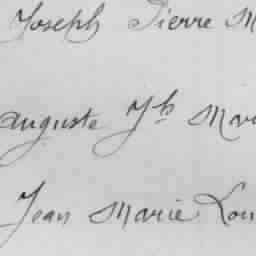 Joseph Pierre M
Auguste Jh Mar
Jean Marie Lou